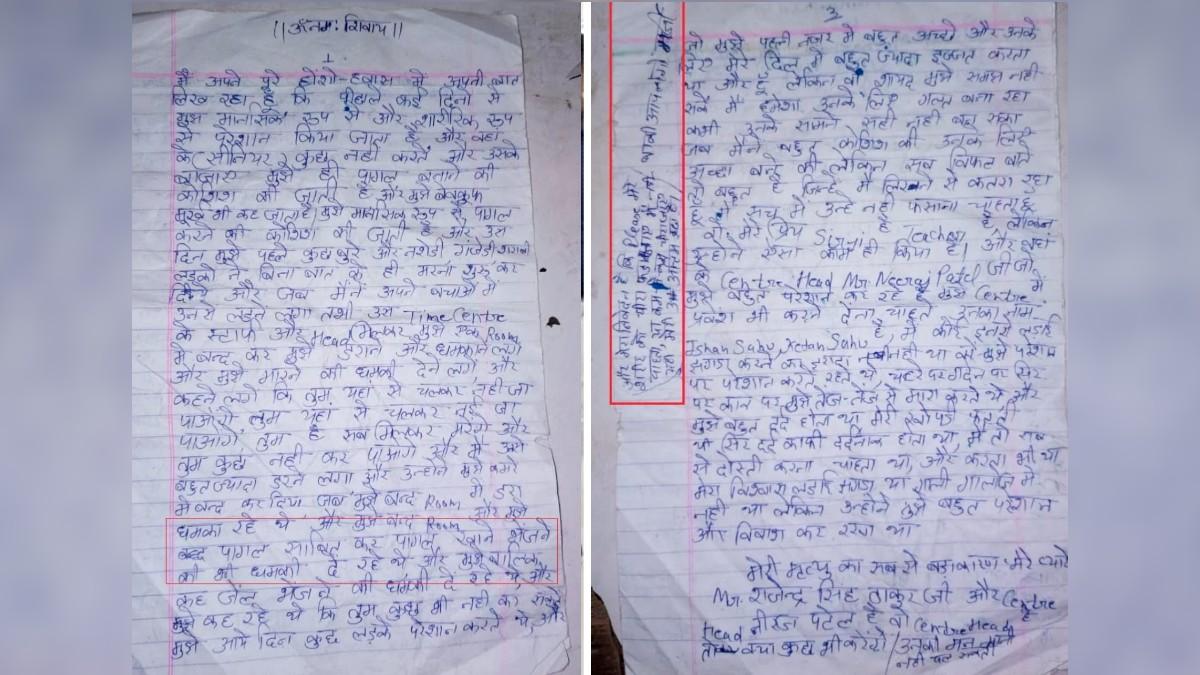 ||ॐ नमः शिवाय||
1
मैं अपने पूरे होशो-हवास में अपनी बात
लिख रहा हूँ कि पीछले कई दिनों से
मुझे मानासिक रूप से और शारीरिक रूप
से परेशान किया जाता है, और वहां
के सीनियर कुछ नही करते, और उसके
मुझे ही पागल बताने की
कोशिश की जाती है और मुझे बेवकूफ
मुरख भी कह जाता है। मुझे मानासिक रूप से पागल
करने की कोशिश की जाती है और उस
दिन मुझे पहले कुछ बुरे और नशेडी गंजेडी शराबी
लड़को ने बिना बात के ही मारना शुरू कर
दिया और जब मैंने अपने बचाओ में
उनसे लड़ने लगा तभी उस Time Centre
के स्टाफ और Head मिलकर मुझे एक Room
मे बन्द कर मुझे डराने और धमकाने लगे
और मुझे मारने की धमकी देने लगे और
कहने लगे कि तुम यहां से चलकर नही जा
पाओगे तुम यहां से चलकर नही जा
पाओगे, तुम्हें सब मिलकर मारेंगे और
तुम कुछ नही कर पाओगे और मैं उनसे
बहुत ज्यादा डरने लगा और उन्होंने मुझे कमरे
में बन्द कर दिया जब मुझे बन्द Room में डरा
धमका रहे थे और मुझे बन्द Room में और मुझे
पागल साबित कर पागल खाने भेजने
की भी धमकी दे रहे थे और मुझे बालिक
जेल भेजने की धमकी दे रहे थे, और
मुझे कह रहे थे कि तुम कुछ भी नही कर सकते
मुझे आये दिन कुछ लड़के परेशान करते थे, और
और मेरा निवेदन है कि Please मेरे
शरीर का चीरा फाड़
3
तो मुझे पहली नजर में बहुत अच्छे और उनके
लिए मेरे दिल में बहुत ज्यादा इज्जत करता
था और हूँ लेकिन वो शायद मुझे समझ नही
सके मैं हमेशा उनके लिए गलत बना रहा
कभी उनके सामने सही नही बन सका
जब मैंने बहुत कोशिश की उनके लिये
अच्छा बन्ने की लेकिन सब विफल बाते
तो बहुत है जिन्हे मैं लिखने से कतरा रहा
हूँ मैं सच में उन्हे नही फसाना चाहता हूँ
वो मेरे प्रिय Teacher है लेकिन
उन्होंने ऐसा काम ही किया है। और वहां
के Centre Head Mr. Neeraj Patel जी जो
मुझे बहुत परेशान कर रहे है मुझे Centre में
प्रवेश भी करने देना चाहते उनका नाम
Ishan Sahu, Ketan Sahu है, मैं कोई इनसे लड़ाई
झगड़ा करने का इरादा नही था वो मुझे परेशान
पर परेशान करते रहते थे, चहरे पर गर्दन पर सिर
पर कान पर मुझे तेज-तेज से मारा करते थे और
मुझे बहुत दर्द होता था मेरी
थी सिर दर्द काफी दर्दनाक होता था, मैं तो सब
से दोस्ती करना चाहता था, और करता भी था
मेरा विश्वास लड़ाई झगड़ा या गाली गालौज में
नही था लेकिन उन्होने मुझे बहुत परेशान
और विवाश कर रखा था
मेरी मृत्यु का सब से बड़ा कारण मेरे प्यारे
Mr. राजेन्द्र सिंह ठाकुर जी और Centre
Head नीरज पटेल है वो Centre Head है
तो क्या कुछ भी करेंगे उनकी मन मानी
नही चल सकती